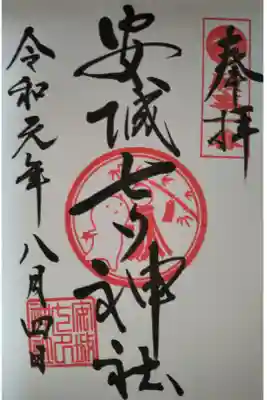 奉拝
安城七夕神社
令和元年八月四日